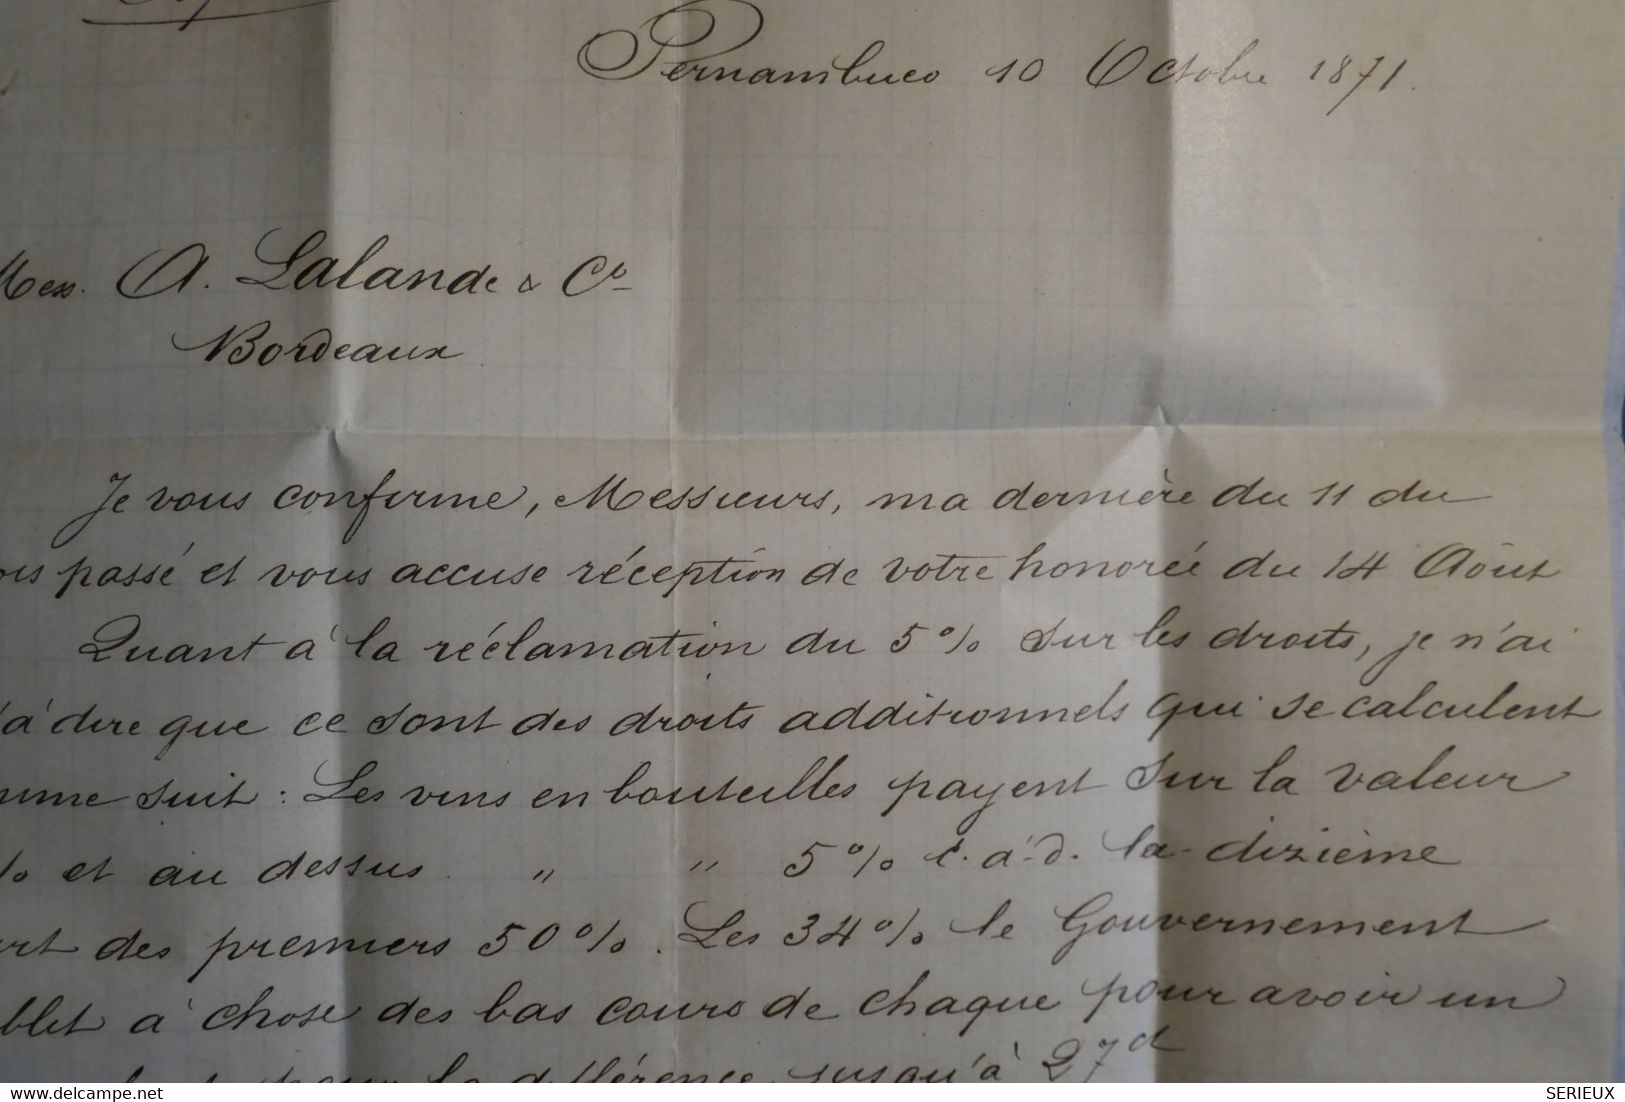 Pernambuco 10 Octobre 1871.
Mess. A. Lalande & Co
Bordeaux
Je vous confirme, Messieurs, ma dernière du 11 du
ois passé et vous accuse réception de votre honorée du 14 Aôut
Quant à la réclamation du 5% sur les droits, je n'ai
'à dire que ce sont des droits additionnels qui se calculent
mme suit : Les vins en bouteilles payent sur la valeur
% et au dessus " " 5% c.à-d. la dizième
rt des premiers 50%. Les 34% le Gouvernement
blit à chose des bas cours de chaque pour avoir un
pour la différence jusqu'à 27d
SERIEUX